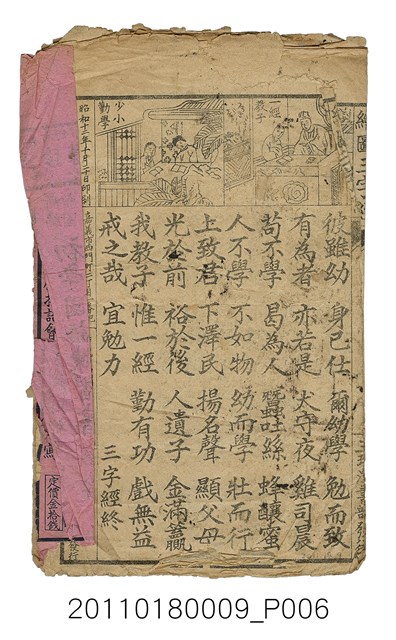 繪圖三字經
一經
教子
少小
勤學
彼雖幼 身已仕 爾幼學 勉而致
有為者 亦若是 犬守夜 雞司晨
苟不學 曷為人 蠶吐絲 蜂釀蜜
人不學 不如物 幼而學 壯而行
上致君 下澤民 揚名聲 顯父母
光於前 裕於後 人遺子 金滿籯
我教子 惟一經 勤有功 戲無益
戒之哉 宜勉力 三字經終
昭和十三年十月二十日印刷
嘉義市西門町
定價金拾錢
發行
20110180009_P006